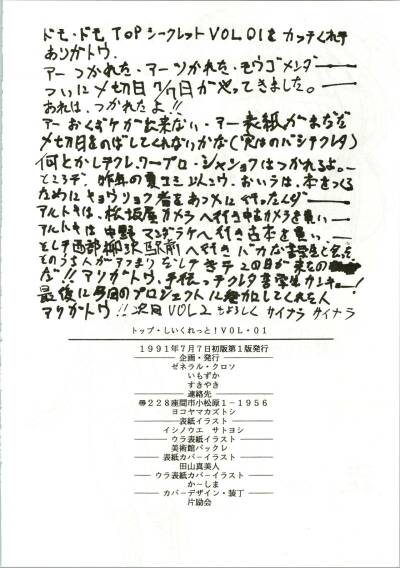 ドモ・ドモ TOPシークレットVOL01を カッテくれテ
アリガトウ.
アー つかれた・アー ツかれた・モウゴメンダー
ついに〆切日 7/7日がやってきました。
おれは、つかれたよ!!
アー おくづケが出来ない・アー表紙がまだだ
〆切日をのばしてくれないかな(実はのバシテクレタ)
何とかしテクレ.ワープロ・シャショクはつかれるよ。ー
ところデ, 昨年の夏コミ以らい, おいうは, 本をつくる
ためにキョウリョク者をあつメに行ったんダー
アルトキは, 松坂屋カメラへ行き中古カメラを買いー
アルトキは 中野 マンダラケへ行き古本を買い ー
そしテ西部柳沢駅前へ行き バカな書学生と会った
そのうち人がアツまり
だ!! アリガトウ, 手伝ってクレタ書学生カンキー!
最後に今回のプロジェクトに参加してくれた人
アリガトウ!! 次回 VOL2 もよろしく サイナラ サイナラ
トップ・しいくれっと!VOL・01
1991年7月7日初版第1版発行
企画・発行
ゼネラル・クロソ
いもずか
すきやき
連絡先
〠228座間市小松原1-1956
ヨコヤマカズトシ
表紙イラスト
イシノウエ サトヨシ
ウラ表紙イラスト
美術館バックレ
表紙カバーイラスト
田山真美人
ウラ表紙カバーイラスト
かーしま
カバーデザイン・装丁
片励会